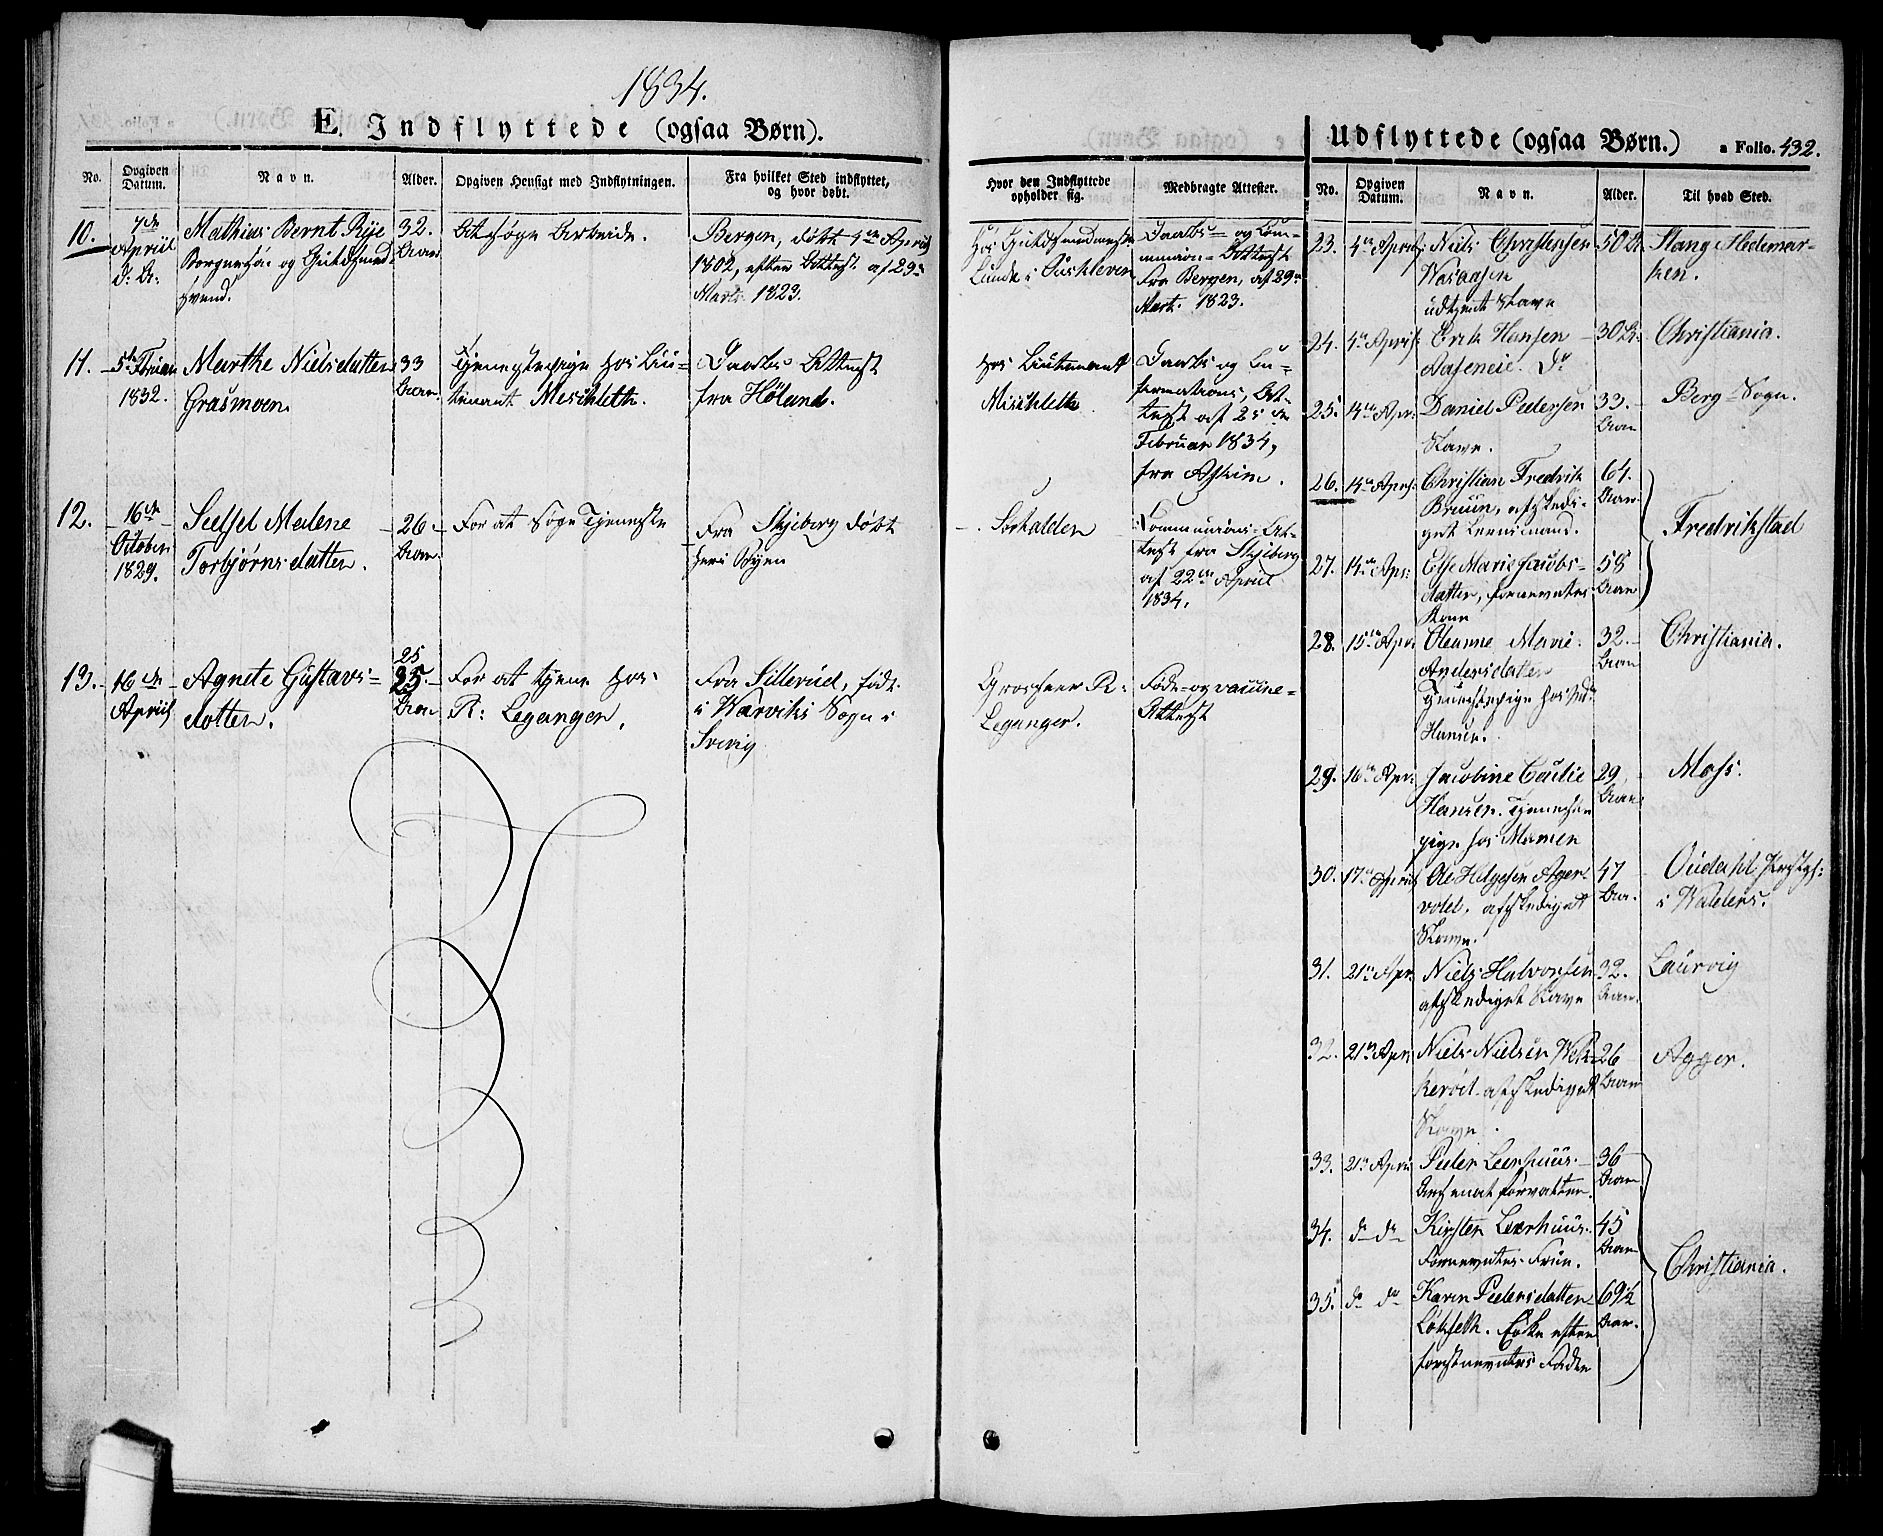 1834.
E. Indflyttede (ogsaa Børn).
No.
Opgiven Datum.
Navn.
Alder.
Opgiven Hensigt med Indflytningen.
Fra hvilket Sted indflyttet, og hvor døbt.
Hvor den Indflyttede opholder sig.
Medbragte Attester.
10.
7de April
Mathias Bernt Rye
Borgersøn og Guldsmed
svend.
32.
Aar
At søge Arbeide.
Bergen, døbt 4de April
1802, efter Attest af 29de
Marts 1823.
Hos Guldsmed
Lunde i
Daabs- og Com-
munions-Attest
fra Bergen, af 29de
Mart. 1823.
11.
5te Februar
1832.
Marthe Nielsdatter
Grasmoen
33
Aar.
Tjenestepige hos Lieu-
tenant Meschleth.
Daabs Attest
fra Høland.
hos Lieutenant
Mischleth
Daabs og Con-
firmations, At-
test af 25de
Februar 1834,
fra Askim.
12.
16de
October
1829.
Sethsel Malene
Torbjørnsdatter.
26.
Aar.
For at søge Tjeneste
Fra Skjeberg døbt
her i Byen
Sorhalden
Communions-At-
test fra Skjeberg
af 22de April
1834.
13.
16de
April
Agnete Gustavs-
dotter.
25
25.
Aar
For at tjene hos
R: Leganger.
Fra Sillerud, født
i Warviks Sogn i
Sverig
Grosserer R:
Leganger.
Føde- og vaccine-
Attest
Udflyttede (ogsaa Børn.)
a Folio. 432.
No.
Opgiven Datum.
Navn.
Alder.
Til hvad Sted.
23.
4de April
Niels Christensen
udtjent Slave
50 A.
Stang Hedemar-
ken.
24.
4de April
Erik Hansen
Aaseneie. Do
30 A.
Christiania.
25.
14de Apr:
Daniel Pedersen
Slave.
33.
Aar
Berg Sogn.
26.
14de Apr:
Christian Fredrik
Bruun, afskedi-
get Leensmand.
64.
Aar
Fredrikstad
27.
14de Apr:
Else Marie Jacobs-
datter, fornævntes
Kone
58
Aar
28.
15de Apr.
Oleanne Marie
Andersdatter
Tjenestepige hos
Hansen.
32.
Aar
Christiania.
29.
16de Apr:
Jacobine Cecilie
Hansen. Tjeneste
pige hos Mamen
29.
Aar
Moss.
30.
17de April
Ole Helgesen Ager-
vold. afskediget
Slave.
47
Aar.
i Walders.
31.
21de Apr.
Niels Halvorsen
afskediget Slave
32.
Aar.
Laurvig
32.
21de Apr.
Niels Nielsen Wek-
kerød afskediget
Slave.
26
Aar
Agger.
33.
21de Apr:
Peder Leerhuus
Arsenalforvalter.
36
Aar
34.
do do
Kirsten Leerhuus
Fornævntes Frue.
45
Aar
Christiania.
35.
do do
Karen Pedersdatter
Løkseth. Enke efter
førstnævntes Fader
69½
Aar.